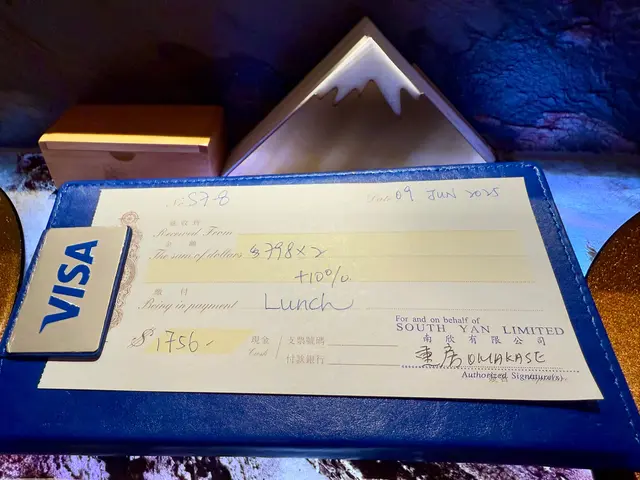 No S7-8 Date 09 JUN 2025
茲收到
Received From
金額
The sum of dollars $798×2
+10%
繳付
Being in payment Lunch
$ 1756- 現金 Cash 支票號碼
付款銀行
VISA
For and on behalf of
SOUTH YAN LIMITED
南欣有限公司
OMAKASE
Authorized Signature(s)